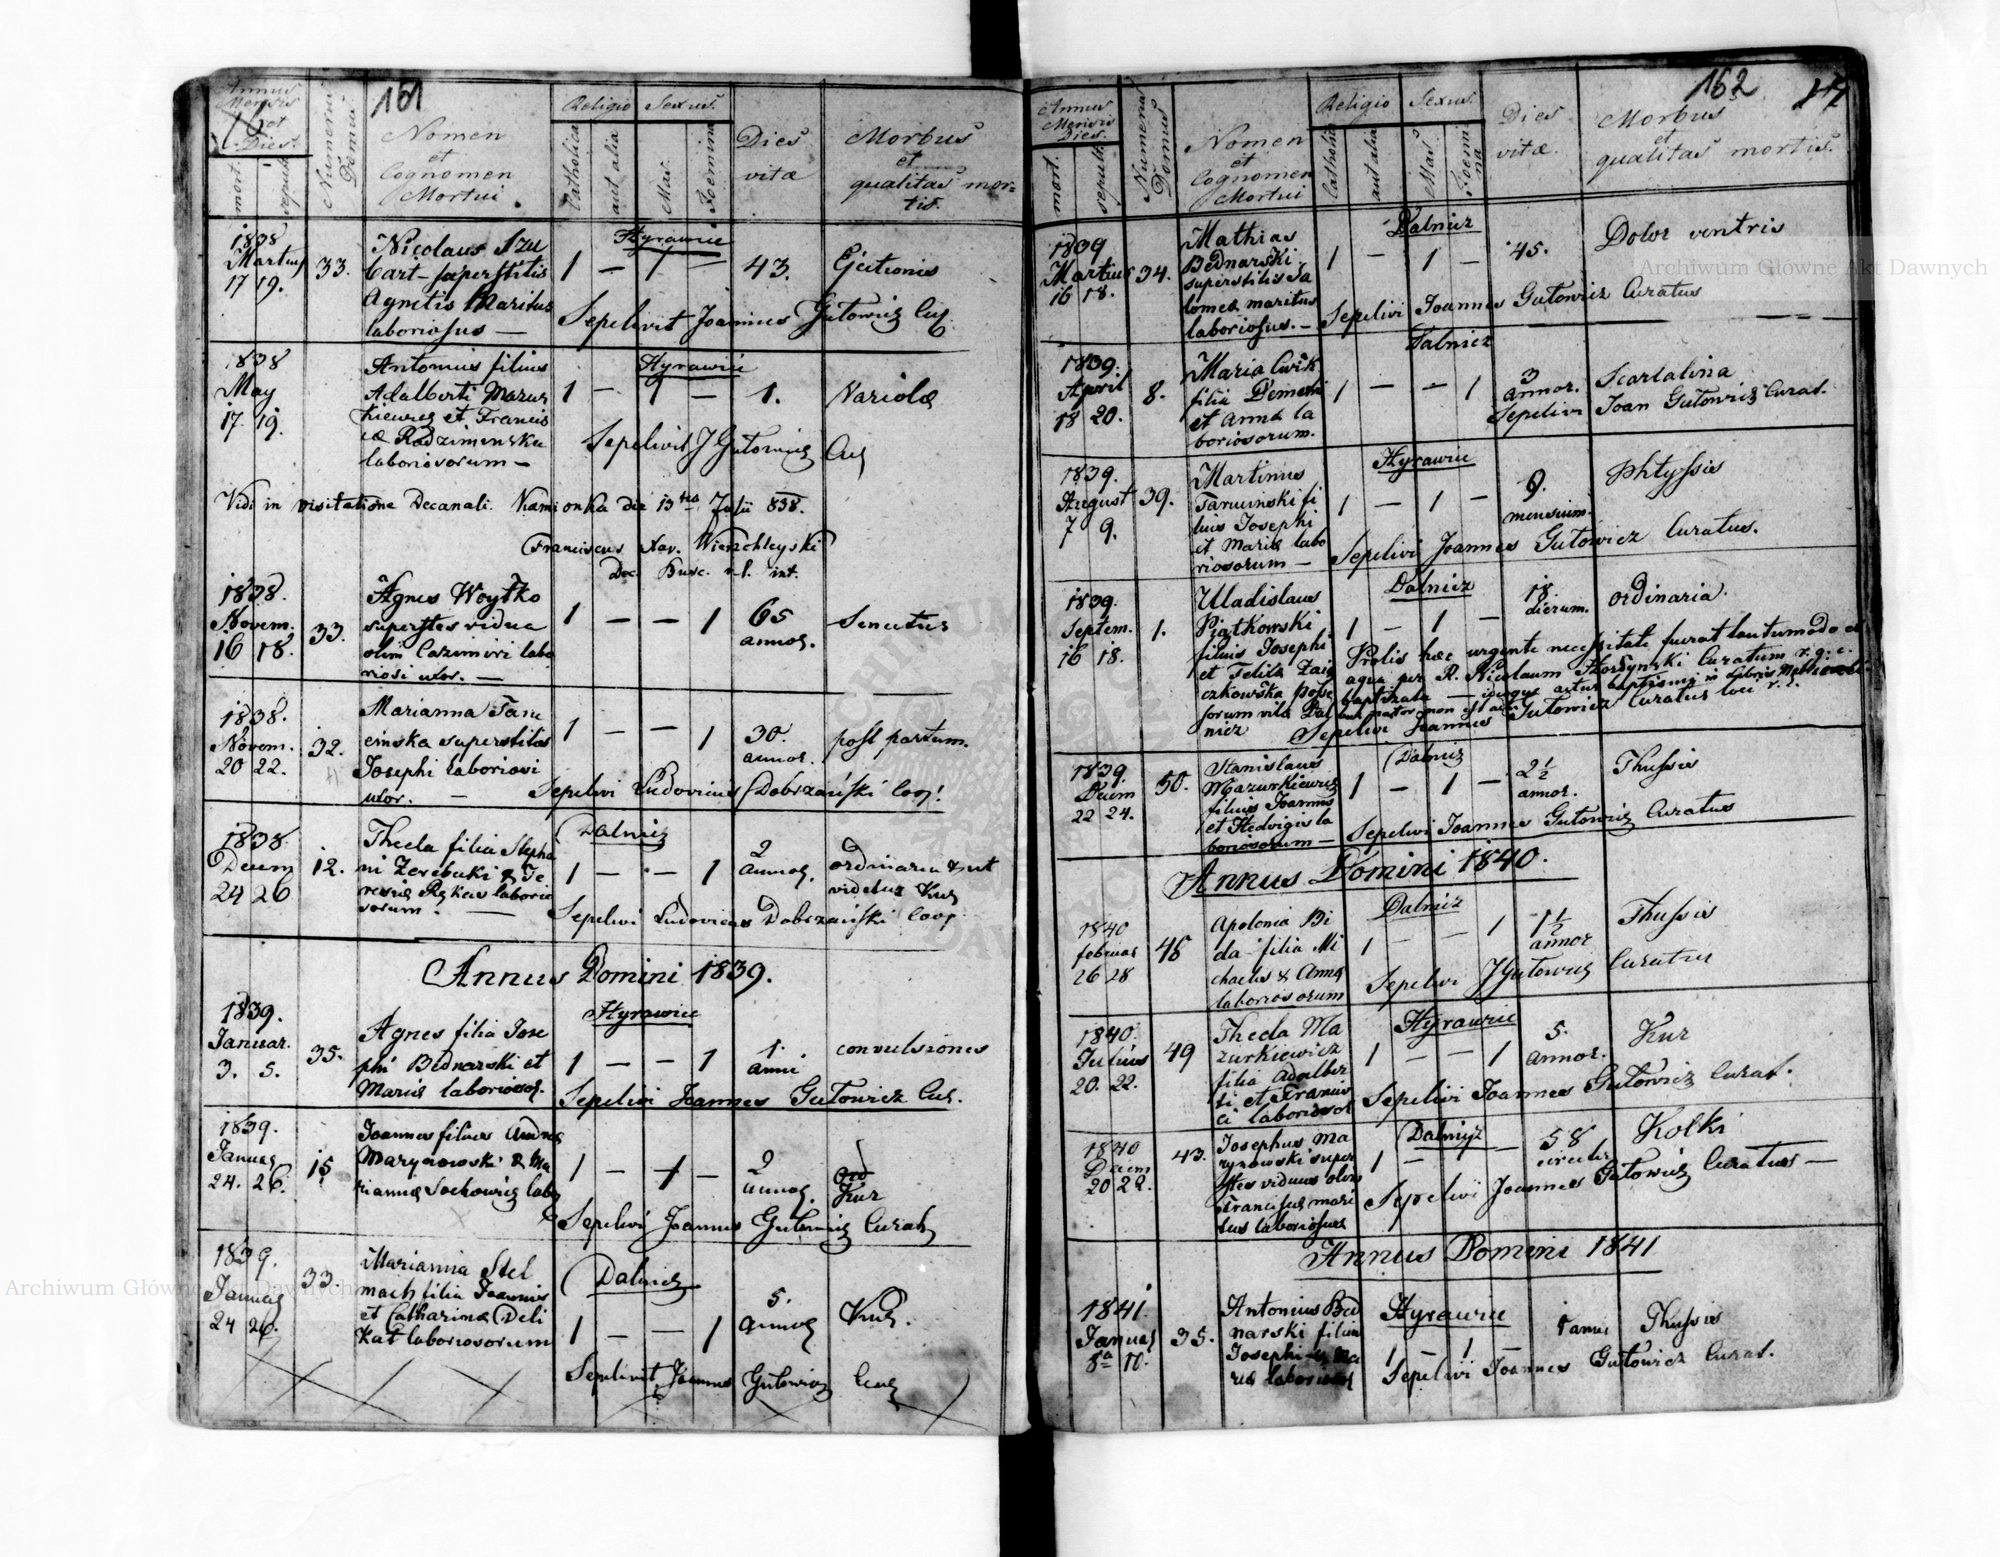 161
Annus Mensis et Dies.
mort. sepult.
Numerus Domus
Nomen et Cognomen Mortui.
Religio
Catholica
aut alia
Sexus.
Mas.
Foemina
Dies vitæ
Morbus et qualitas mortis.
1838
Martius
17 19.
33.
Nicolaus
superstitis
Agnetis Maritus
laboriosus —
Hyrawie
1 — 1 —
43.
Sepelivit Joannes Gutowicz
1838
May
17 19.
Antonius filius
Adalberti Mazur
kiewicz et Francis
cæ Radzimenska
laboriosorum —
Hyrawie
1 — 1 —
1.
Variolæ
Sepelivit J Gutowicz
Vidi in visitatione Decanali. Kamionka die 13 Julii 838.
Franciscus Xav. Wierzchleyski
Dec. Busc.
1838.
Novem.
16 18.
33.
Agnes Woytko
superstes vidua
olim Casimiri labo
riosi uxor. —
1 — — 1
65
annor.
Senectus
1838.
Novem.
20 22.
32.
Marianna
superstitis
Josephi laboriosi
uxor. —
1 — — 1
30.
annor.
post partum.
Sepelivi Ludovicus Dobrzański Coop.
1838
Decem
24 26
12.
Thecla filia Stepha
ni Zerebuki & Te
resiæ laborio
sorum. —
Dalnicz
1 — — 1
2
annor.
ordinaria & ut
videtur Kur
Sepelivi Ludovicus Dobrzański Coop
Annus Domini 1839.
1839.
Januar.
3. 5.
35.
Agnes filia Jose
phi Bednarski et
Mariæ laboriosor.
Hyrawie
1 — — 1
1.
anni
convulsiones
Sepelivi Joannes Gutowicz Cur.
1839.
Januar
24. 26.
15
Joannes filius Andreæ
Marynowski & Ma
riannæ Sochowicz labor
1 — 1 —
2
annor.
Kur
Sepelivi Joannes Gutowicz Curat
1839.
Januar
24 26.
33.
Marianna Stel
mach filia Joannis
et Catharinæ Deli
kat laboriosorum
Dalnicz
1 — — 1
5.
annor
Kur.
Sepelivit Joannes Gutowicz Cur
162
Annus Mensis Dies.
mort. sepult.
Numerus Domus
Nomen et Cognomen Mortui
Religio
Catholica
aut alia
Sexus.
Mas.
Foemina
Dies vitæ.
Morbus et qualitas mortis.
1839
Martius
16 18.
34.
Mathias
Bednarski
superstitis Sa
lomeæ maritus
laboriosus. —
Dalnicz
1 — 1 —
45.
Dolor ventris
Sepelivi Joannes Gutowicz Curatus
1839.
April
18 20.
8.
Maria Cwik
filia
et Annæ la
boriosorum.
Dalnicz
1 — — 1
3
annor.
Scarlatina
Sepelivi Joan Gutowicz Curat.
1839.
August
7 9.
39.
Martinus
Tarcinski fi
lius Josephi
et Mariæ labo
riosorum —
Hyrawie
1 — 1 —
9.
mensium.
Phtyssis
Sepelivi Joannes Gutowicz Curatus.
1839.
Septem.
16 18.
1.
Uladislaus
Piatkowski
filius Josephi
et Felicæ Zaig
czkowska posses
sorum villæ Dal
nicz
Dalnicz
1 — 1 —
18.
dierum.
ordinaria.
Prolis hæc urgente necessitate fuerat tantumodo ex
aqua per R. Nicolaum Curatum r. g. c.
baptizata — ideoque actus baptismi in Libris
Sepelivi Joannes Gutowicz Curatus loci r. l.
1839.
Decem
22 24.
50.
Stanislaus
Mazurkiewicz
filius Joannis
et Hedvigis la
boriosorum —
Dalnicz
1 — 1 —
2 ½
annor.
Thussis
Sepelivi Joannes Gutowicz Curatus
Annus Domini 1840.
1840
februar
26 28
48
Apolonia Bi
da filia Mi
chaelis & Annæ
laboriosorum
Dalnicz
1 — — 1
1 ½
annor
Thussis
Sepelivi J Gutowicz Curatus
1840.
Julius
20. 22.
49
Thecla Ma
zurkiewicz
filia Adalber
ti et Francis
cæ laboriosor
Hyrawie
1 — — 1
5.
annor.
Kur
Sepelivi Joannes Gutowicz Curat.
1840
Decem
20 22.
43.
Josephus Ma
rynowski super
stes viduus olim
Franciscæ mari
tus laboriosus
Dalnicz
1 —
58
circiter
Kolki
Sepelivi Joannes Gutowicz Curatus —
Annus Domini 1841
1841.
Januar
8ª 10.
35.
Antonius Bed
narski filius
Josephi & Ma
riæ laboriosor
Hyrawie
1 — 1 —
1 anni
Thussis
Sepelivi Joannes Gutowicz Curat.
Archiwum Główne Akt Dawnych
Archiwum Główne Akt Dawnych